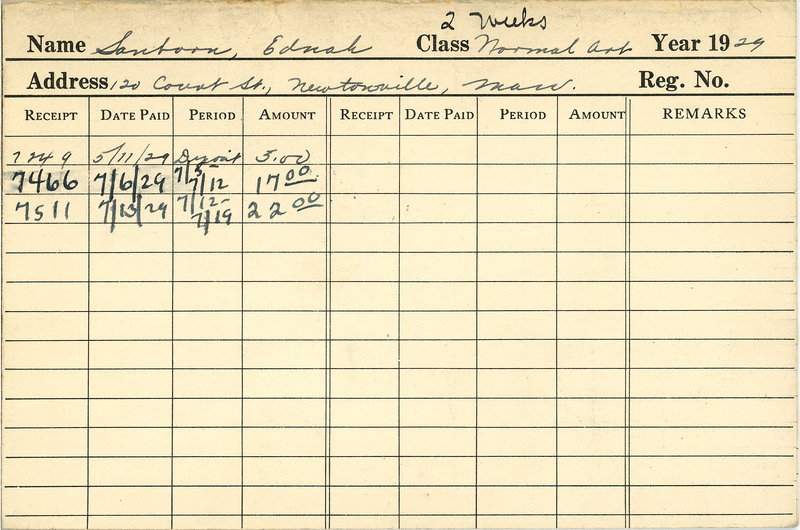 2 Weeks
Name Sanborn, Ednah Class Normal Art Year 1929
Address 120 Court St., Newtonville, Mass. Reg. No.
RECEIPT DATE PAID PERIOD AMOUNT RECEIPT DATE PAID PERIOD AMOUNT REMARKS
7249 5/11/29 Deposit 5.00
7466 7/6/29 7/5- 7/12 17 00
7511 7/13/29 7/12- 7/19 22 00